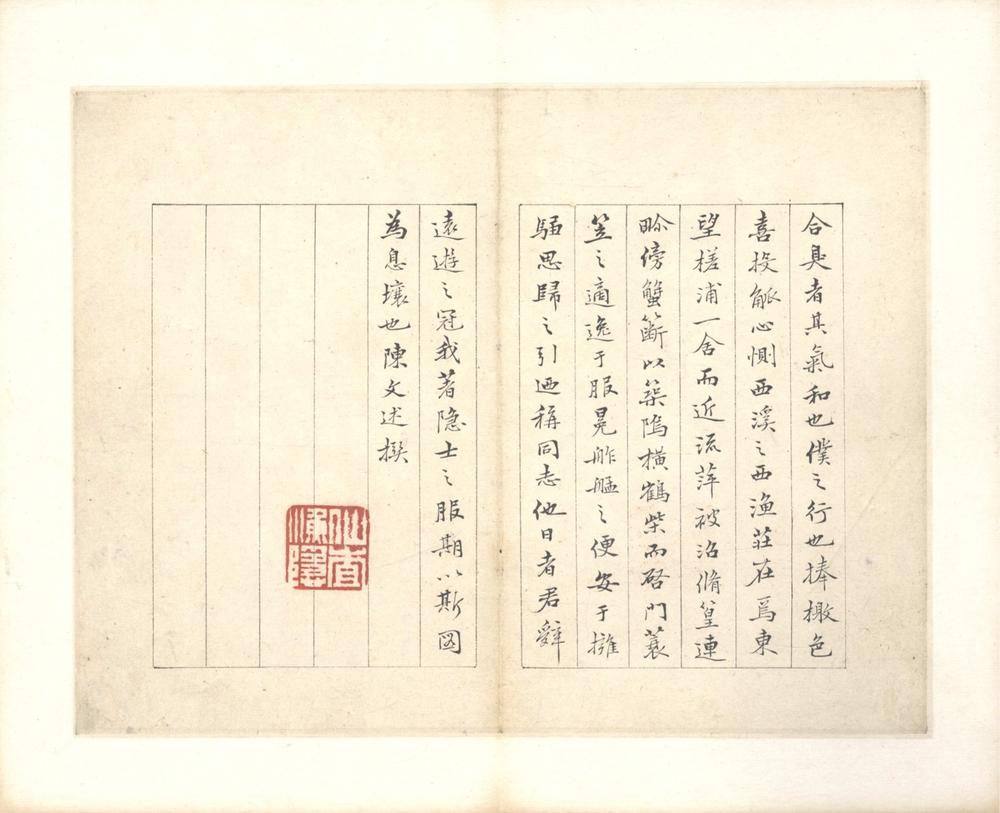 合臭者其氣和也僕之行也捧檄色
喜投觚心惻西溪之西漁莊在焉東
望槎浦一舍而近流萍被沼脩篁連
畛傍蟹籪以築隖橫鶴柴而啓門蓑
笠之適逸于服冕舴艋之便安于擁
騶思歸之引迺稱同志他日者君辭
遠遊之冠我著隐士之服期以斯圖
為息壤也陳文述撰